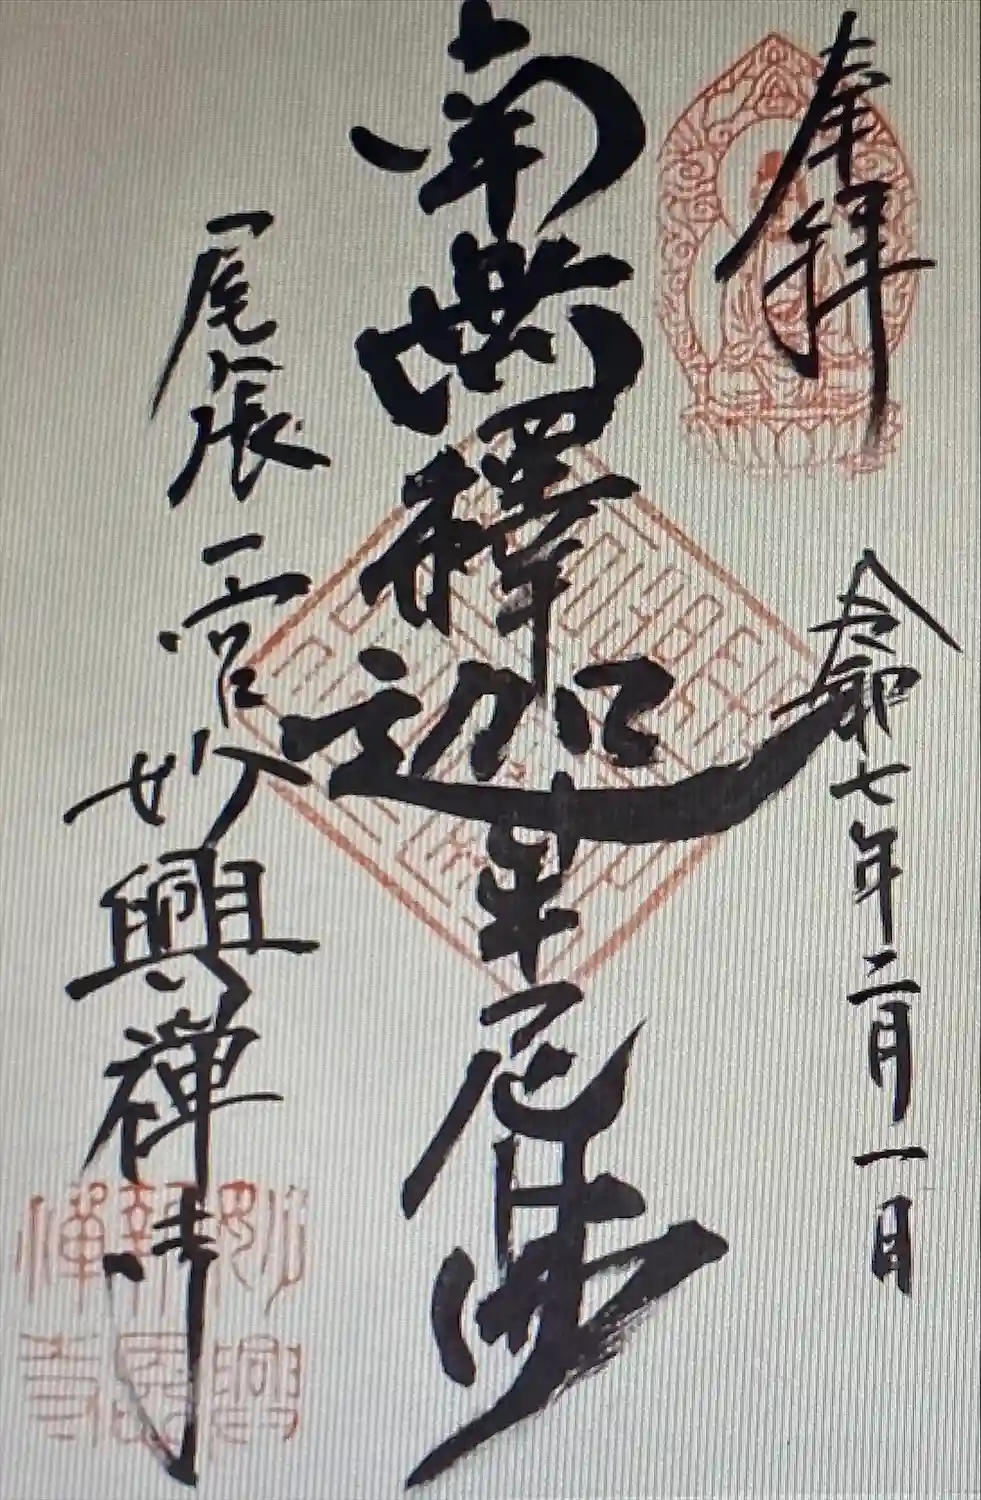 奉拝
令和七年二月一日
南無釋迦牟尼佛
尾張一宮妙興禅寺
妙興報恩禅寺